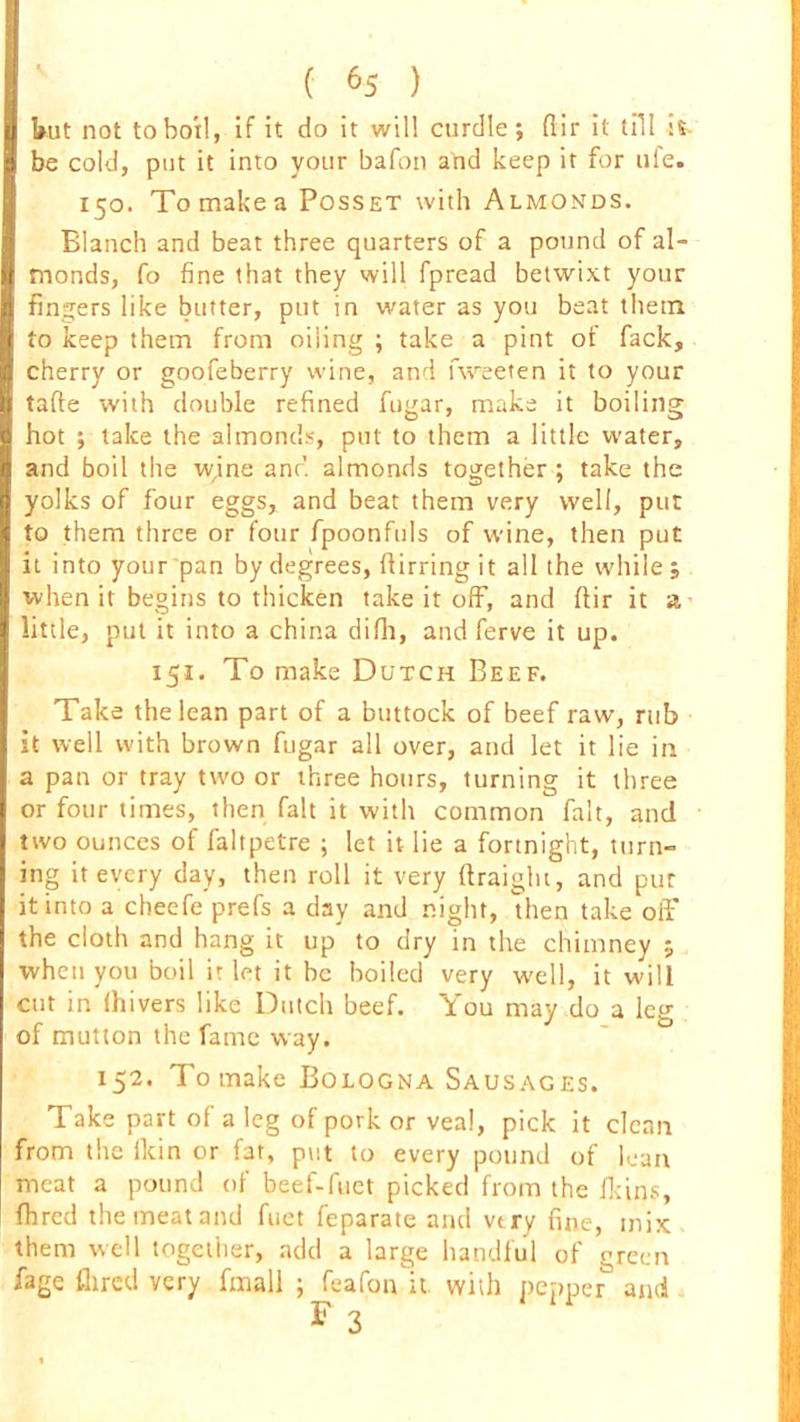 ( 65 )
but not to boil, if it do it will curdle; ſtir it till it
be cold, put it into your baſon and keep it for uſe.
150. To make a Posset with Almonds.
Blanch and beat three quarters of a pound of al-
monds, ſo fine that they will ſpread betwixt your
fingers like butter, put in water as you beat them
to keep them from oiling ; take a pint of ſack,
cherry or gooſeberry wine, and ſweeten it to your
taſte with double refined ſugar, make it boiling
hot ; take the almonds, put to them a little water,
and boil the wine and almonds together ; take the
yolks of four eggs, and beat them very well, put
to them three or four ſpoonfuls of wine, then put
it into your pan by degrees, ſtirring it all the while ;
when it begins to thicken take it off, and ſtir it a
little, put it into a china diſh, and ſerve it up.
151. To make Dutch Beef.
Take the lean part of a buttock of beef raw, rub
it well with brown ſugar all over, and let it lie in
a pan or tray two or three hours, turning it three
or four times, then ſalt it with common ſalt, and
two ounces of ſaltpetre ; let it lie a fortnight, turn-
ing it every day, then roll it very ſtraight, and put
it into a cheeſe preſs a day and night, then take off
the cloth and hang it up to dry in the chimney ;
when you boil it let it be boiled very well, it will
cut in ſhivers like Dutch beef. You may do a leg
of mutton the ſame way.
152. To make Bologna Sausages.
Take part of a leg of pork or veal, pick it clean
from the ſkin or fat, put to every pound of lean
meat a pound of beef-ſuet picked from the ſkins,
ſhred the meat and ſuet ſeparate and very fine, mix
them well together, add a large handful of green
ſage ſhred very ſmall ; ſeaſon it with pepper and
F 3